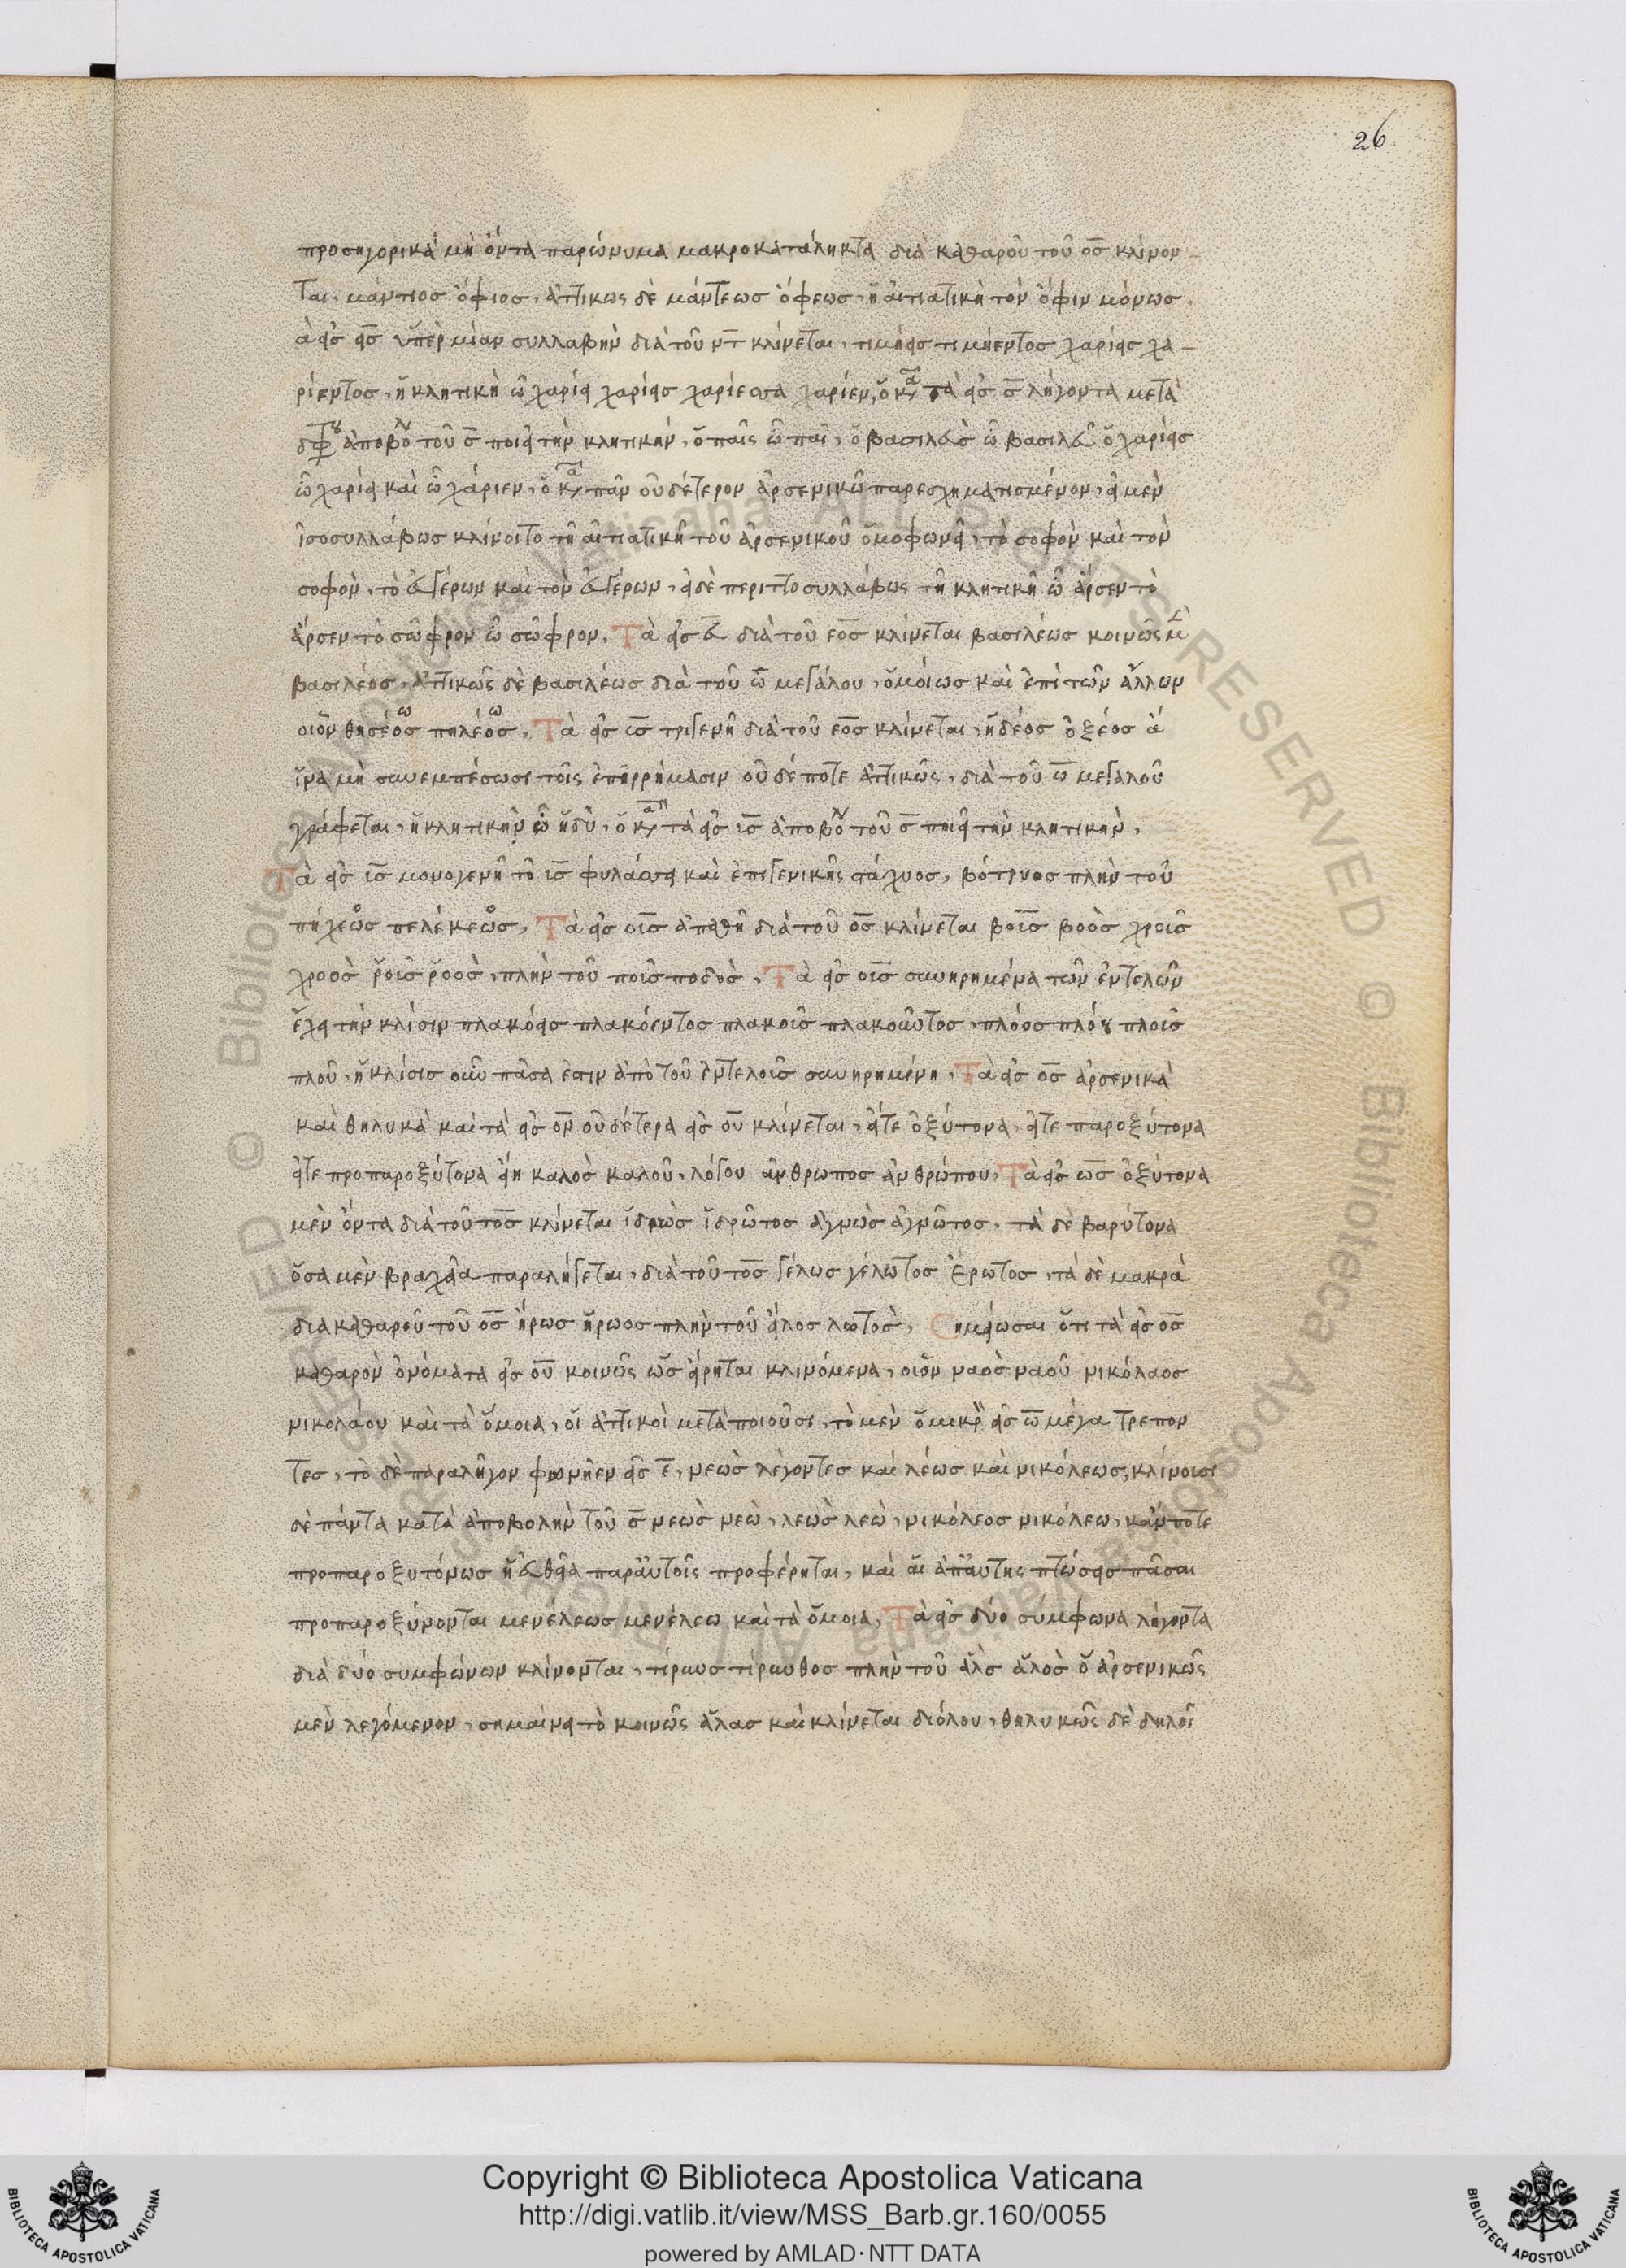 26
προσηγορικὰ μὴ ὄντα παρώνυμα μακροκατάληκτα διὰ καθαροῦ τοῦ ος κλίνον
ται, μάντιος ὄφιος, ἀττικως δὲ μάντεως ὄφεως, ἡ αἰτιατικὴ τὸν ὄφιν μόνως.
ὰ εἰς εις ὑπὲρ μίαν συλλαβὴν διὰ τοῦ ντ κλίνεται, τιμήεις τιμήεντος χαρίεις χα–
ρίεντος, ἡ κλητικὴ ὦ χαρίει χαρίεις χαρίεσσα χαρίεν, τὰ εἰς ς λήγοντα μετὰ
ἀποβο τοῦ ς ποιεῖ τὴν κλητικήν, ὁ παῖς ὦ παῖ, ὁ βασιλεὺς ὦ βασιλεῦ ὁ χαρίεις
ὦ χαρίει καὶ ὦ χάριεν, πᾶν οὐδέτερον ἀρσενικῶ παρεσχηματισμένον, εἰ μὲν
ἰσοσυλλάβως κλίνοιτο τῆ αἰτιατικῆ τοῦ ἀρσενικοῦ ὁμοφωνεῖ, τὸ σοφὸν καὶ τὸν
σοφὸν, τὸ εὔγερων καὶ τὸν εὔγερων, εἰ δὲ περιττοσυλλάβως τῆ κλητικῆ ὦ ἄρσεν τὸ
ἄρσεν τὸ σῶφρον ὦ σῶφρον. Τὰ εἰς ευ διὰ τοῦ εος κλίνεται βασιλέως κοινῶς
βασιλέος, ἀττικῶς δὲ βασιλέως διὰ τοῦ ω μεγάλου, ὁμοίως καὶ ἐπὶ τῶν ἄλλων
οἷον θησέος πηλέος, Τὰ εἰς υς τριγενῆ διὰ τοῦ εος κλίνεται, ἡδέος ὀξέος ἁ
ἵνα μὴ συνεμπέσωσι τοῖς ἐπιρρήμασιν οὐδέποτε ἀττικῶς, διὰ τοῦ ω μεγάλου
γράφεται, ἡ κλητικὴν ὦ ἡδὺ, τὰ εἰς υς ἀποβο τοῦ ς ποιεῖ τὴν κλητικὴν,
Τὰ εἰς υς μονογενῆ τὸ υς φυλάσσει καὶ ἐπιγενικῆς στάχυος, βότρυος πλὴν τοῦ
πήχεως πελέκεως, Τὰ εἰς ους ἀπαθῆ διὰ τοῦ ος κλίνεται βοῦς βοὸς χροῦς
χροὸς ῥοῦς ῥοὸς, πλὴν τοῦ ποῦς ποδὸς, Τὰ εἰς ους συνηρημένα τῶν ἐντελῶν
ἔχει τὴν κλίσιν πλακόεις πλακόεντος πλακοῦς πλακοῦντος, πλόος πλόου πλοῦς
πλοῦ, ἡ κλίσις οὖν πᾶσα ἐστιν ἀπὸ τοῦ ἐντελοῦς συνηρημένη, Τὰ εἰς ος ἀρσενικὰ
καὶ θηλυκὰ καὶ τὰ εἰς ον οὐδέτερα εἰς ου κλίνεται, εἴτε ὀξύτονα, εἴτε παροξύτονα
εἴτε προπαροξύτονα εἴη καλὸς καλοῦ, λόγου ἄνθρωπος ἀνθρώπου, Τὰ εἰς ως ὀξύτονα
μὲν ὄντα διὰ τοῦ τος κλίνεται ἱδρὼς ἱδρῶτος ἀγνὼς ἀγνῶτος, τὰ δὲ βαρύτονα
ὅσα μὲν βραχεῖα παραλήγεται, διὰ τοῦ τος γέλως γέλωτος ἔρωτος, τὰ δὲ μακρὰ
διὰ καθαροῦ τοῦ ος ἥρως ἥρωος πλὴν τοῦ εἵλος λωτος, Σημείωσαι ὅτι τὰ εἰς ος
καθαρὸν ὀνόματα εἰς ου κοινῶς ὡς εἴρηται κλινόμενα, οἷον ναὸς ναοῦ νικόλαος
νικολάου καὶ τὰ ὅμοια, οἱ ἀττικοὶ μεταποιοῦσι, τὸ μὲν ὄμικρ εἰς ω μέγα τρέπον
τες, τὸ δὲ παραλῆγον φωνῆεν εἰς ε, νεὼς λέγοντες καὶ λέως καὶ νικόλεως, κλίνουσι
δὲ πάντα κατὰ ἀποβολὴν τοῦ ς νεὼς νεὼ, λεὼς λεὼ, νικόλεος νικόλεω, κἄν ποτε
προπαροξυτόνως ἡ εὐθεῖα παρ' αὐτοῖς προφέρηται, καὶ αἱ ἀπ' αὐτῆς πτώσεις πᾶσαι
προπαροξύνονται μενέλεως μενέλεω καὶ τὰ ὅμοια, Τὰ εἰς δύο σύμφωνα λήγοντα
διὰ δύο συμφώνων κλίνονται, τίρυνς τίρυνθος πλὴν τοῦ ἅλς ἁλὸς ὃ ἀρσενικῶς
μὲν λεγόμενον, σημαίνει τὸ κοινῶς ἅλας καὶ κλίνεται διόλου, θηλυκῶς δὲ δηλοῖ
Copyright © Biblioteca Apostolica Vaticana
http://digi.vatlib.it/view/MSS_Barb.gr.160/0055
powered by AMLAD · NTT DATA
BIBLIOTECA APOSTOLICA VATICANA
BIBLIOTECA APOSTOLICA VATICANA